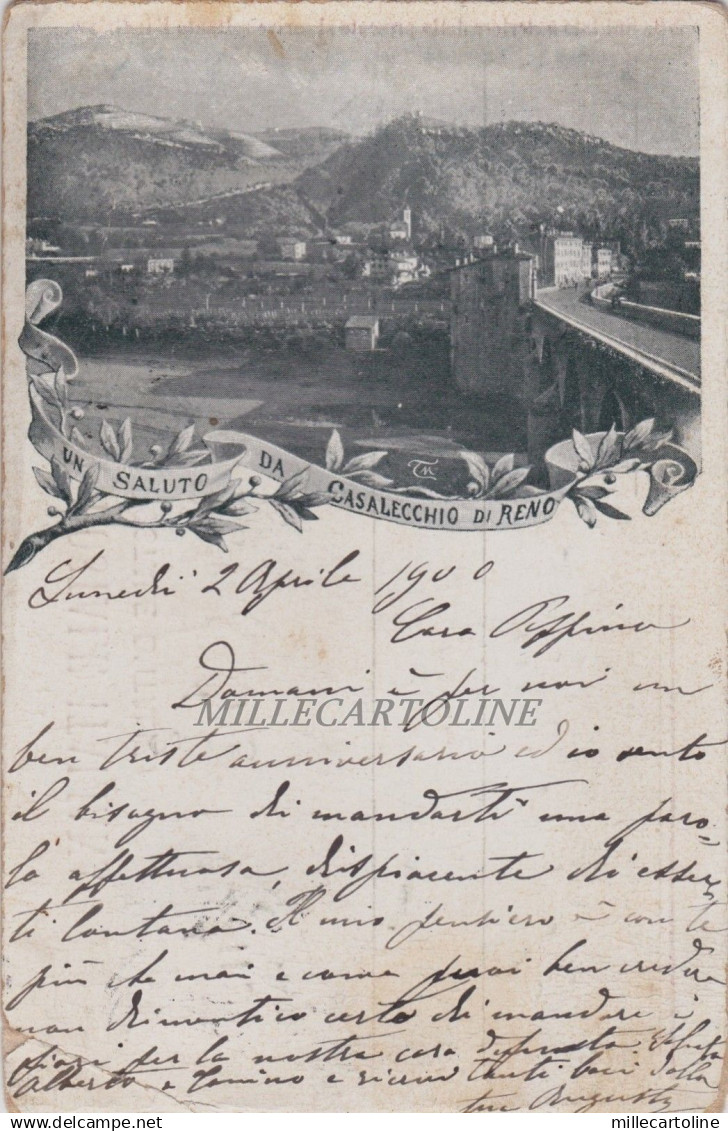 UN SALUTO DA CASALECCHIO DI RENO
TM
Lunedì 2 Aprile 1900
Cara Peppina
Domani è per noi un
MILLECARTOLINE
ben triste anniversario ed io sento
il bisogno di mandarti una paro-
la affettuosa, dispiacente di esser
ti lontana. Il mio pensiero è con te
più che mai e come puoi ben credere
non dimentico certo di mandare i
fiori per la nostra cara defunta. Saluta
Alberto e Tonino e ricevi tanti baci dalla
tua Augusta
millecartoline
Delcampe.net